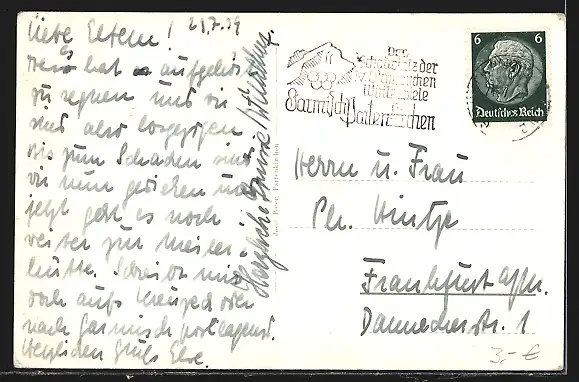 Liebe Eltern! 21.7.39
es hat aufgehört
zu regnen und wir
sind also losgezogen.
Bis zum Schachen sind
wir nun gediehen und
jetzt geht es noch
weiter zur Meiler-
hütte. Schreibt mir
doch aufs Kreuzeck oder
nach Garmisch postlagernd.
Herzlichen Gruß Else.
Herzliche Grüsse
Jos. Beng, Partenkirchen
Der
Schauplatz der
IV. Olympischen
Winterspiele
Garmisch
Partenkirchen
6 6
Deutsches Reich
Herrn u. Frau
Ph. Hintze
Frankfurt a/M.
Danneckerstr. 1
3,- €